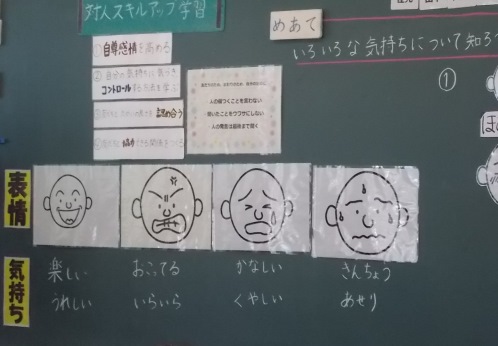 対人スキルアップ学習
めあて
いろいろな気持ちについて知ろう
①
①自尊感情を高める
②自分の気持ちに気づき
コントロールする方法を学ぶ
認め合う
人の傷つくことを言わない
聞いたことをウワサにしない
人の発言は最後まで聴く
表情
気持ち
楽しい
おこってる
かなしい
きんちょう
うれしい
いらいら
くやしい
あせり